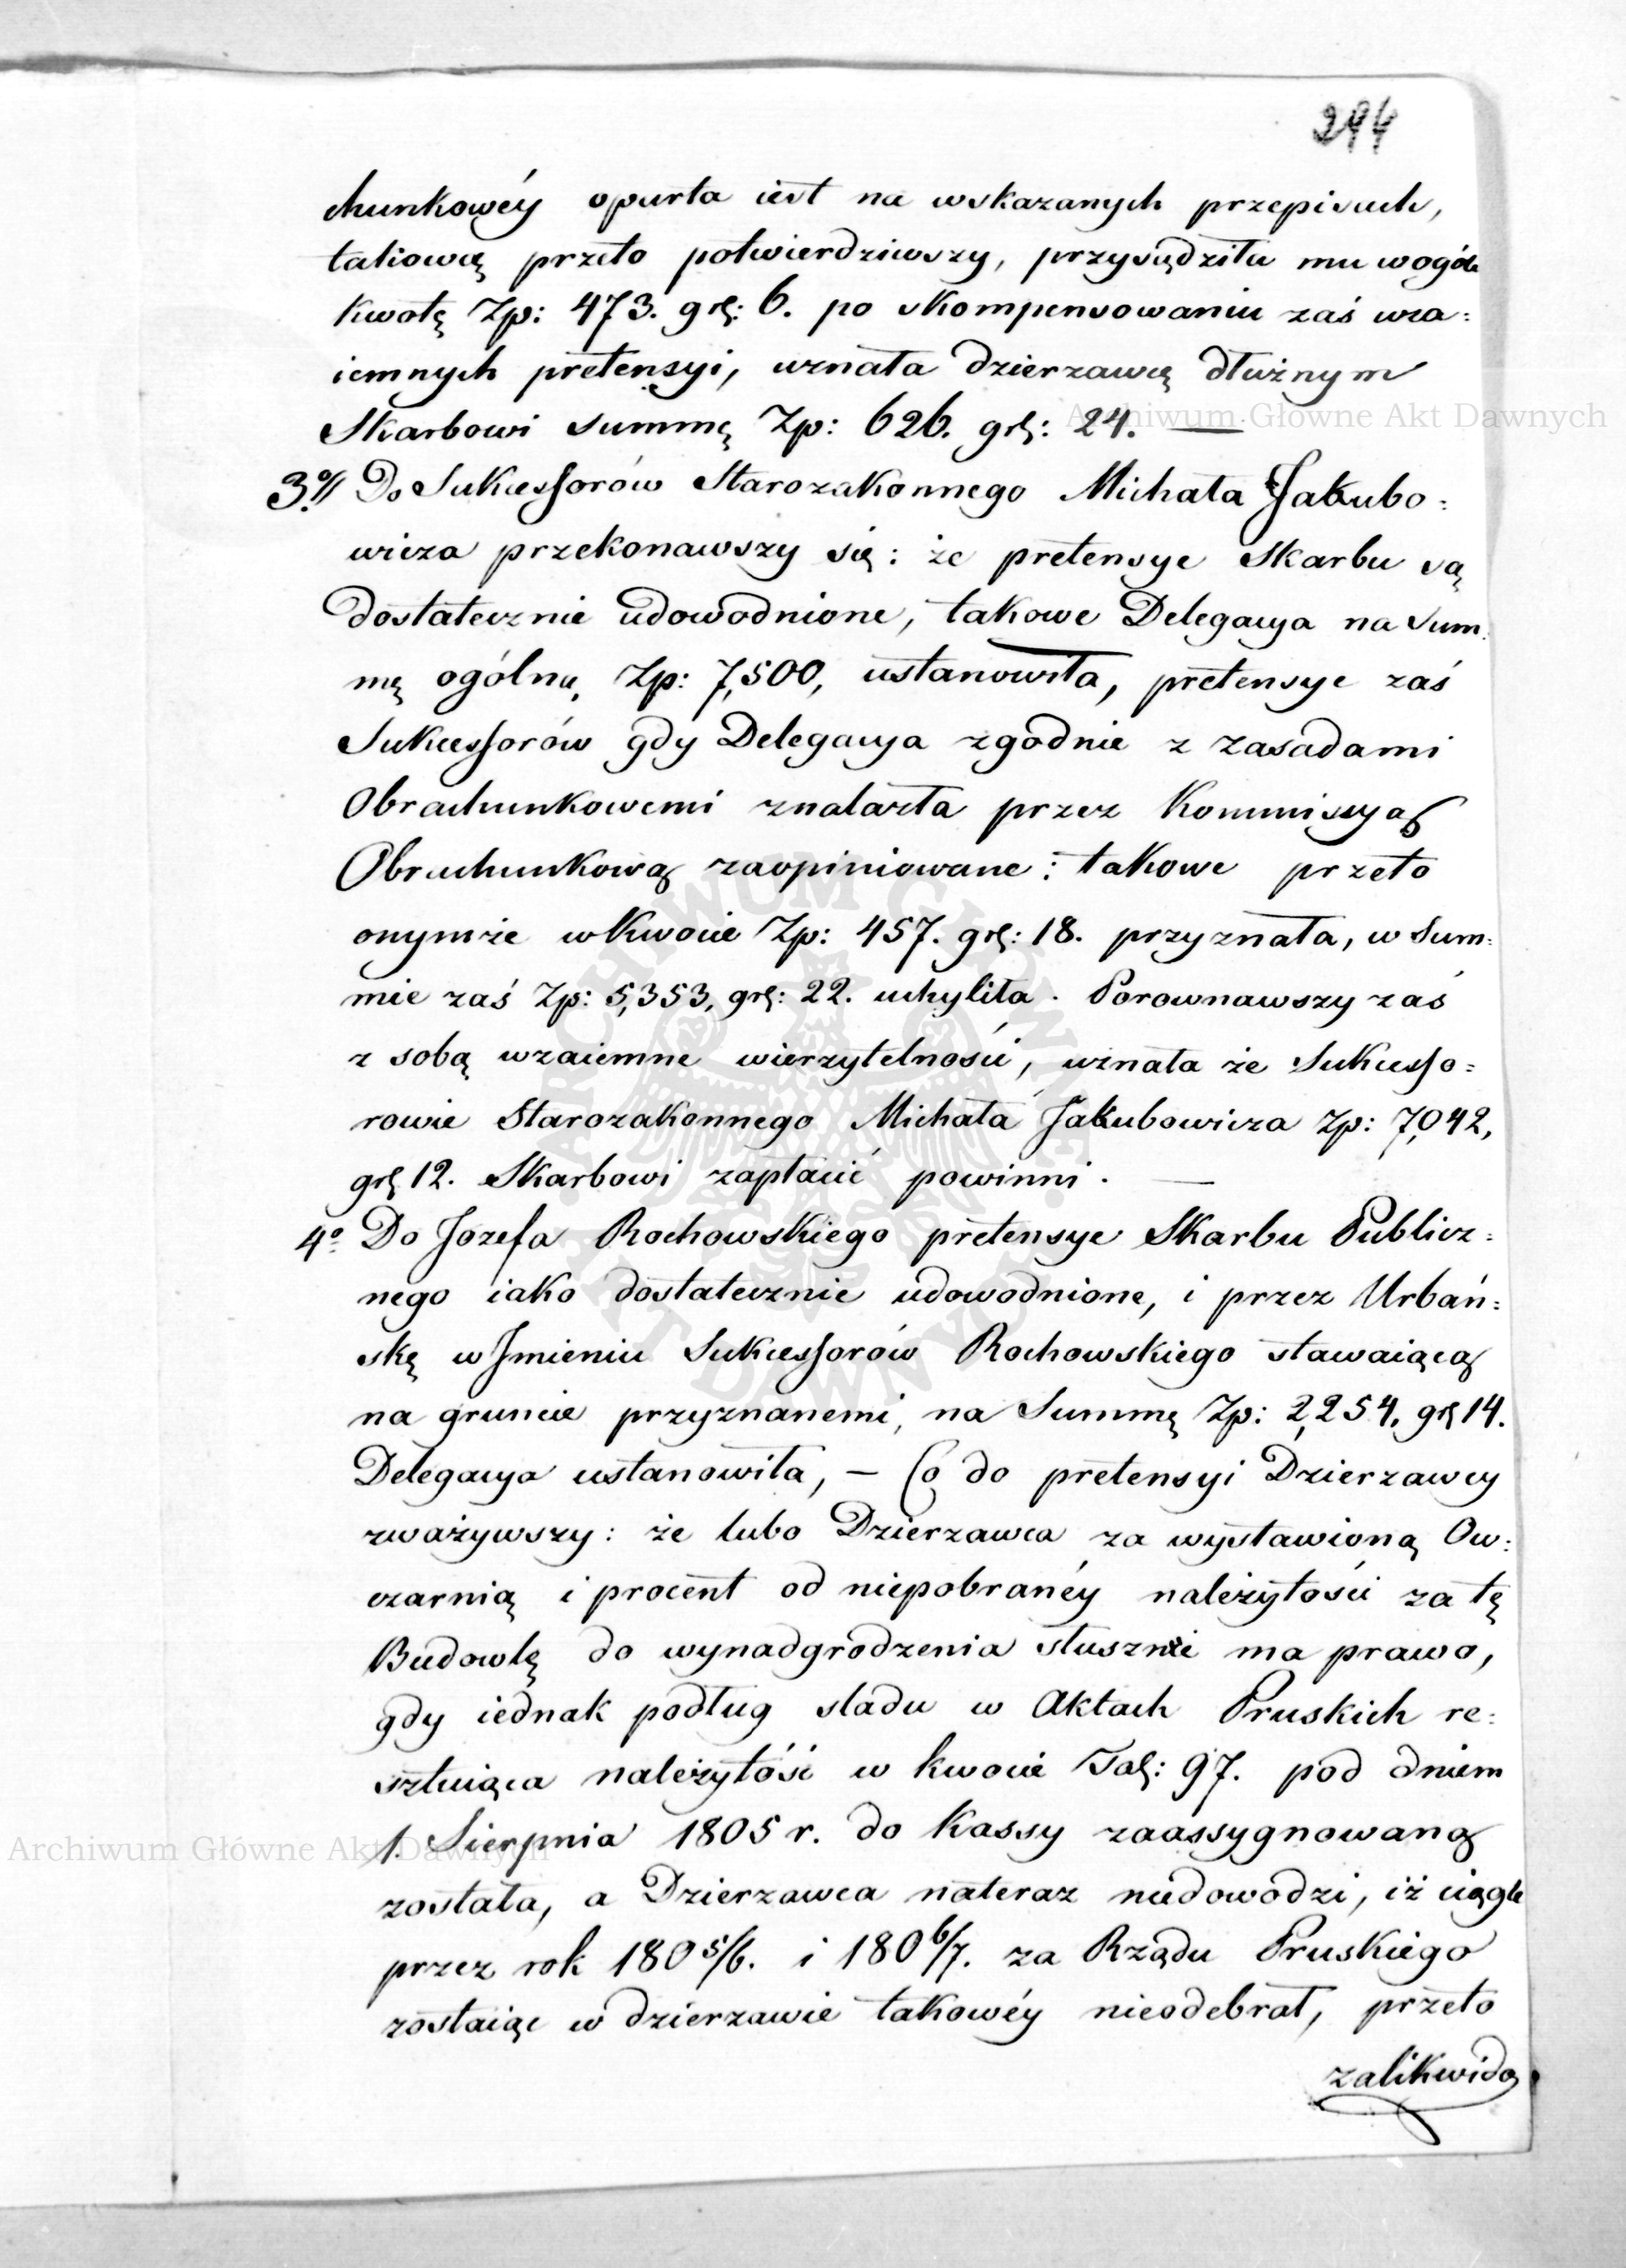 294
chunkowéy oparta iest na wskazanych przepisach,
takową przeto potwierdziwszy, przysądziła mu wogóle
kwotę Zp: 473. grſ: 6. po skompensowaniu zaś wza=
iemnych pretensyi, uznała dzierzawcę dłużnym
Skarbowi summę Zp: 626. grſ: 24. —
3º// Do Sukcessorów Starozakonnego Michała Jakubo=
wicza przekonawszy się: że pretensye Skarbu są
dostatecznie udowodnione, takowe Delegacya na Sum=
mę ogólną Zp: 7,500, ustanowiła, pretensye zaś
Sukcessorów gdy Delegacya zgodnie z zasadami
Obrachunkowemi znalazła przez Kommissyą
Obrachunkową zaopiniowane: takowe przeto
onymże w Kwocie Zp: 457. grſ: 18. przyznała, w Sum=
mie zaś Zp: 5,353, grſ: 22. uchyliła. Porownawszy zaś
z sobą wzaiemne wierzytelności, uznała że Sukcesso=
rowie Starozakonnego Michała Jakubowicza Zp: 7,042,
grſ 12. Skarbowi zapłacić powinni. —
4º Do Jozefa Rochowskiego pretensye Skarbu Publicz=
nego iako dostatecznie udowodnione, i przez Urbań=
skę w Jmieniu Sukcessorów Rochowskiego stawaiącą
na gruncie przyznanemi, na Summę Zp: 2,254, grſ 14.
Delegacya ustanowiła, — Co do pretensyi Dzierzawcy
zważywszy: że lubo Dzierzawca za wystawioną Ow=
czarnią i procent od niepobranéy należytości za tę
Budowlę do wynadgrodzenia słusznie ma prawo,
gdy iednak podług sladu w Aktach Pruskich re=
sztuiąca należytość w kwocie Talſ: 97. pod dniem
1. Sierpnia 1805 r. do Kassy zaassygnowaną
została, a Dzierzawca nateraz niedowodzi, iż ciągle
przez rok 180 5/6. i 180 6/7. za Rządu Pruskiego
zostaiąc w dzierzawie takowéy nieodebrał, przeto
zalikwido
Archiwum Główne Akt Dawnych
Archiwum Główne Akt Dawnych
ARCHIWUM GŁÓWNE
AKT DAWNYCH